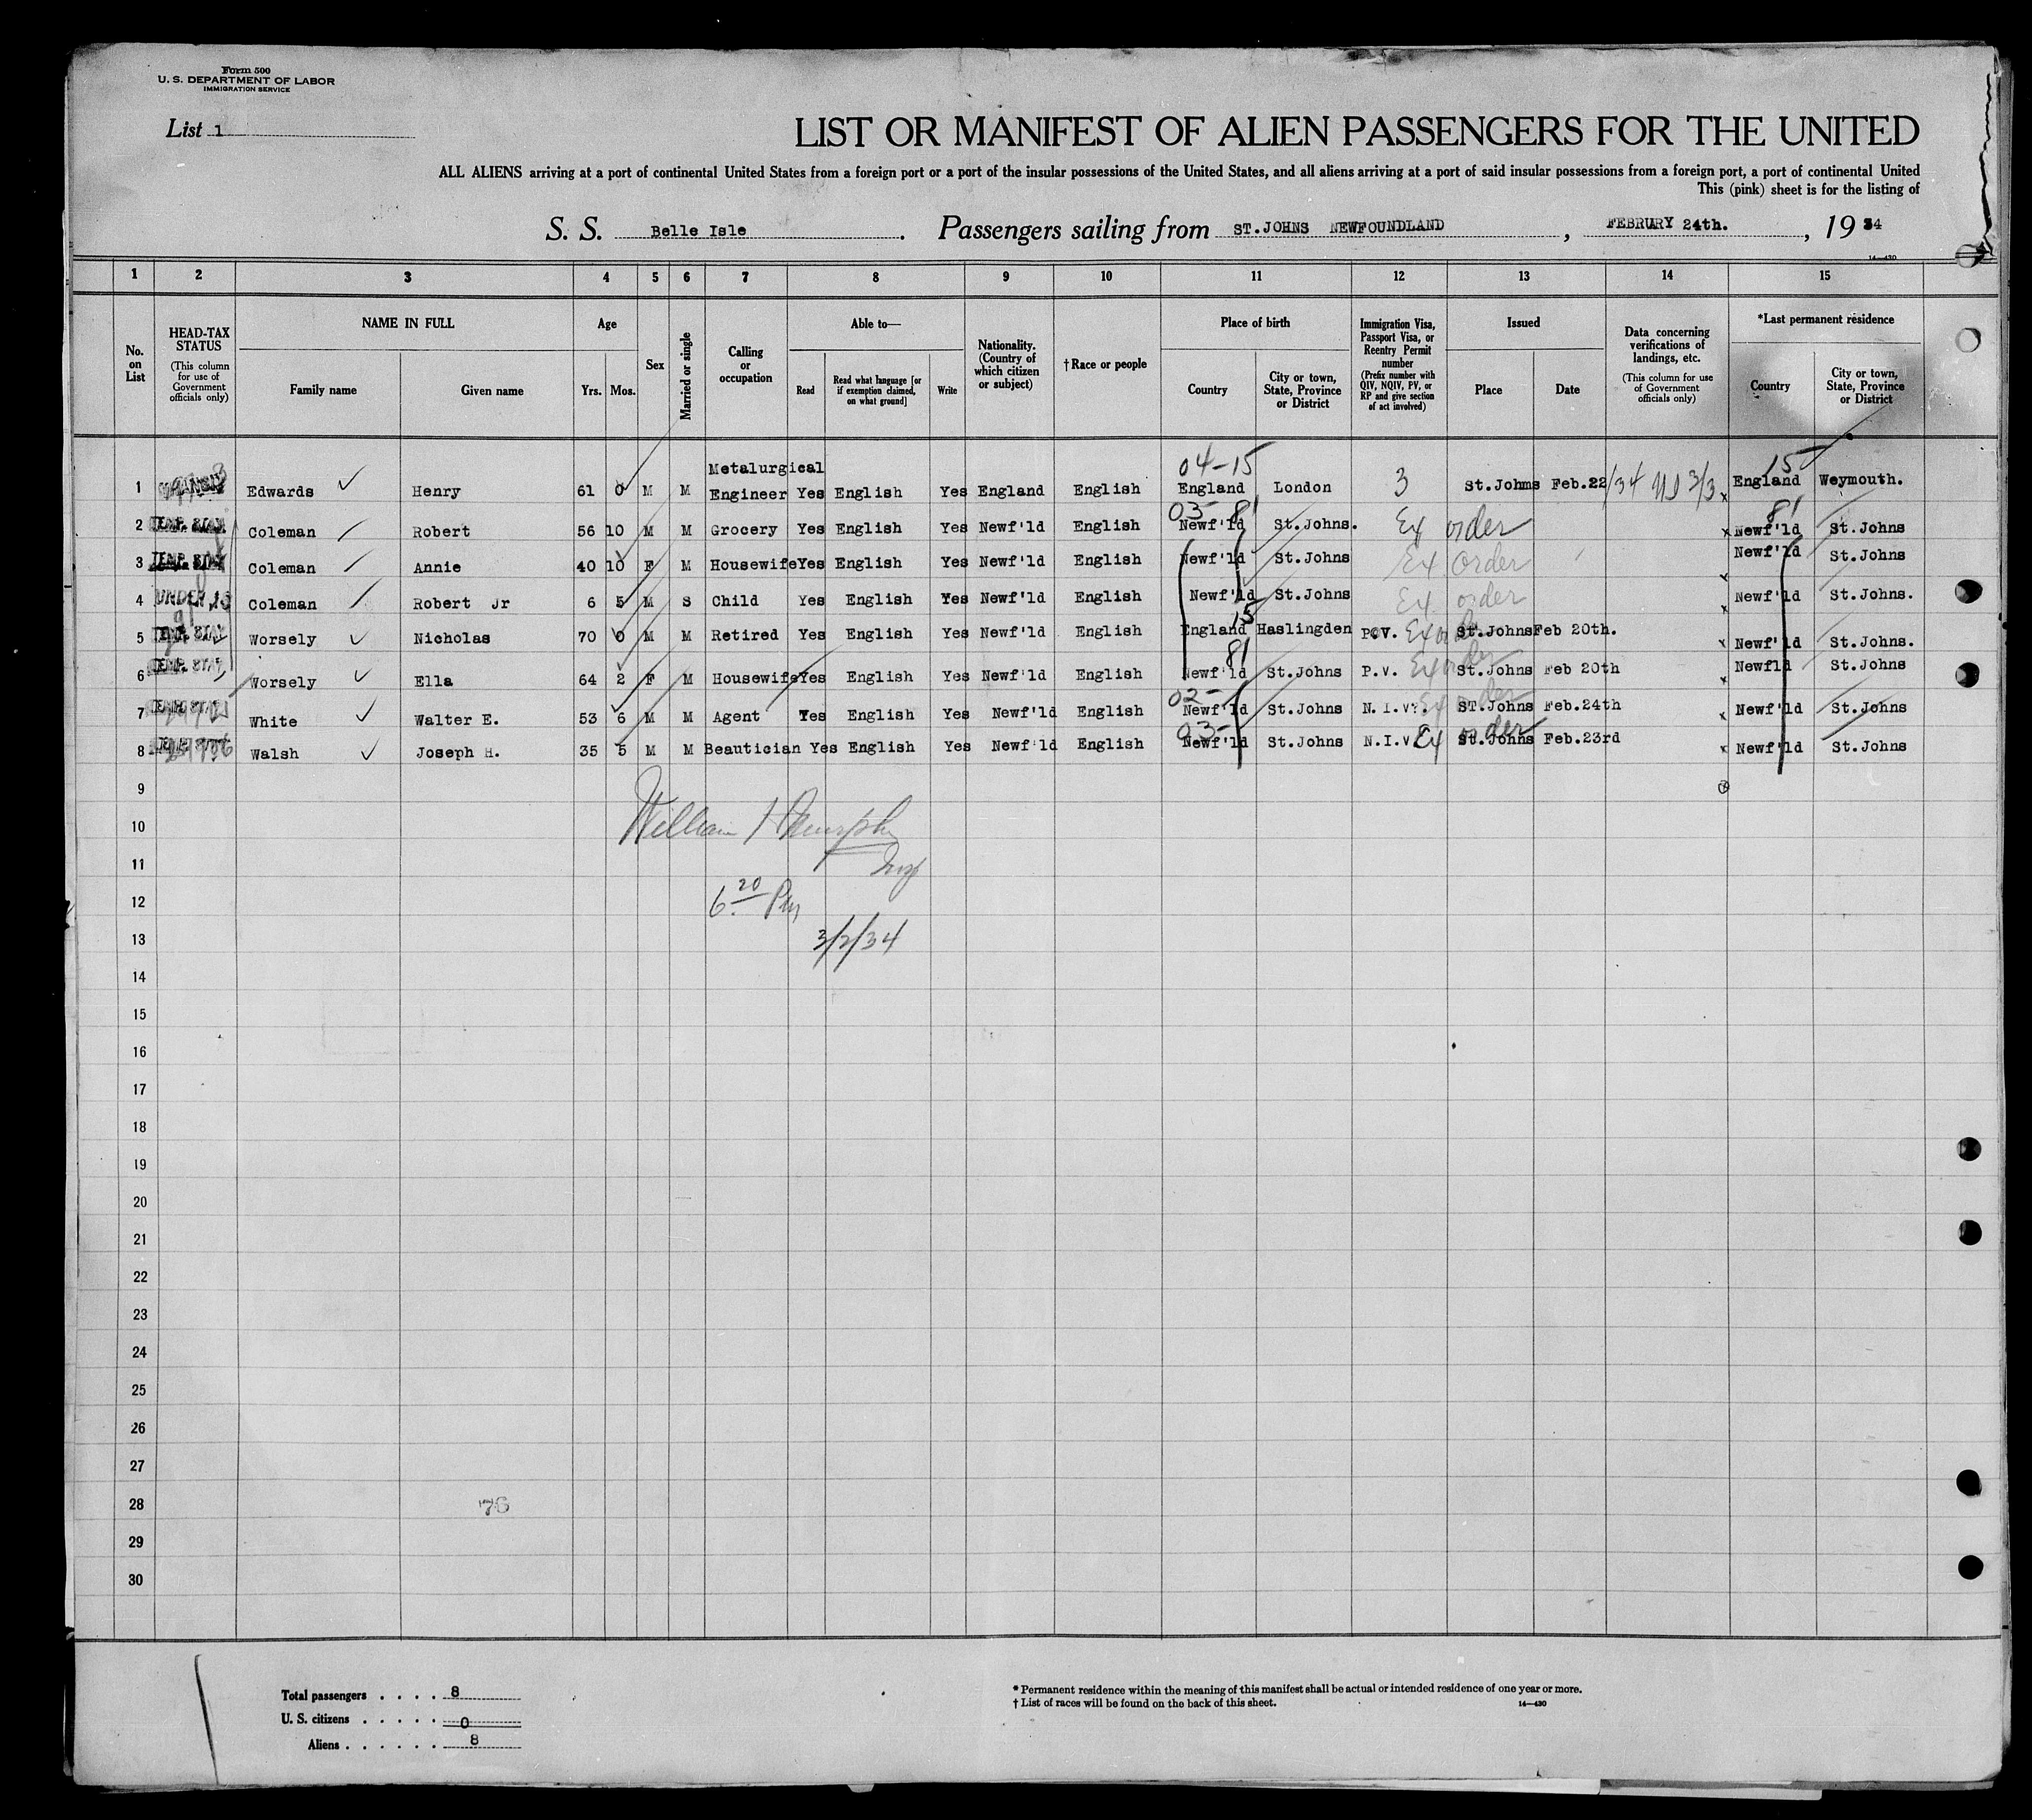 Form 500
U. S. DEPARTMENT OF LABOR
IMMIGRATION SERVICE
List 1
LIST OR MANIFEST OF ALIEN PASSENGERS FOR THE UNITED
ALL ALIENS arriving at a port of continental United States from a foreign port or a port of the insular possessions of the United States, and all aliens arriving at a port of said insular possessions from a foreign port, a port of continental United
This (pink) sheet is for the listing of
S. S. Belle Isle. Passengers sailing from ST.JOHNS NEWFOUNDLAND, FEBRURY 24th., 19 34
14—430
1 2 3 4 5 6 7 8 9 10 11 12 13 14 15
No. on List
HEAD-TAX STATUS
(This column for use of Government officials only)
NAME IN FULL
Family name
Given name
Age
Yrs. Mos.
Sex
Married or single
Calling or occupation
Able to—
Read
Read what language [or if exemption claimed, on what ground]
Write
Nationality. (Country of which citizen or subject)
† Race or people
Place of birth
Country
City or town, State, Province or District
Immigration Visa, Passport Visa, or Reentry Permit number
(Prefix number with QIV, NQIV, PV, or RP and give section of act involved)
Issued
Place
Date
Data concerning verifications of landings, etc.
(This column for use of Government officials only)
*Last permanent residence
Country
City or town, State, Province or District
Metalurgical 04-15 15
1 Edwards Henry 61 0 M M Engineer Yes English Yes England English England London 3 St.Johns Feb.22/34 3/3 x England Weymouth.
03- 81 81
2 TEMP. STAY Coleman Robert 56 10 M M Grocery Yes English Yes Newf'ld English Newf'ld St.Johns. Ex order x Newf'ld St.Johns
3 TEMP. STAY Coleman Annie 40 10 F M Housewife Yes English Yes Newf'ld English Newf'ld St.Johns Ex Order Newf'ld St.Johns
4 UNDER 16 Coleman Robert Jr 6 5 M S Child Yes English Yes Newf'ld English Newf'ld St.Johns Ex order x Newf'ld St.Johns.
15
5 TEMP. STAY Worsely Nicholas 70 0 M M Retired Yes English Yes Newf'ld English England Haslingden P.V. Ex order St.Johns Feb 20th. x Newf'ld St.Johns.
81
6 TEMP. STAY Worsely Ella 64 2 F M Housewife Yes English Yes Newf'ld English Newf'ld St.Johns P.V. Ex order St.Johns Feb 20th x Newfld St.Johns
02-
7 TEMP. STAY White Walter E. 53 6 M M Agent Yes English Yes Newf'ld English Newf'ld St.Johns N.I.V. Ex order ST.Johns Feb.24th x Newf'ld St.Johns
03-
8 Walsh Joseph H. 35 5 M M Beautician Yes English Yes Newf'ld English Newf'ld St.Johns N.I.V. Ex order St.Johns Feb.23rd x Newf'ld St.Johns
9
10 William H Murphy
11 Insp
12 6.20 Pm
13 3/2/34
14
15
16
17
18
19
20
21
22
23
24
25
26
27
28 76
29
30
Total passengers . . . . 8
U. S. citizens . . . . . 0
Aliens . . . . . . 8
* Permanent residence within the meaning of this manifest shall be actual or intended residence of one year or more.
† List of races will be found on the back of this sheet. 14—430